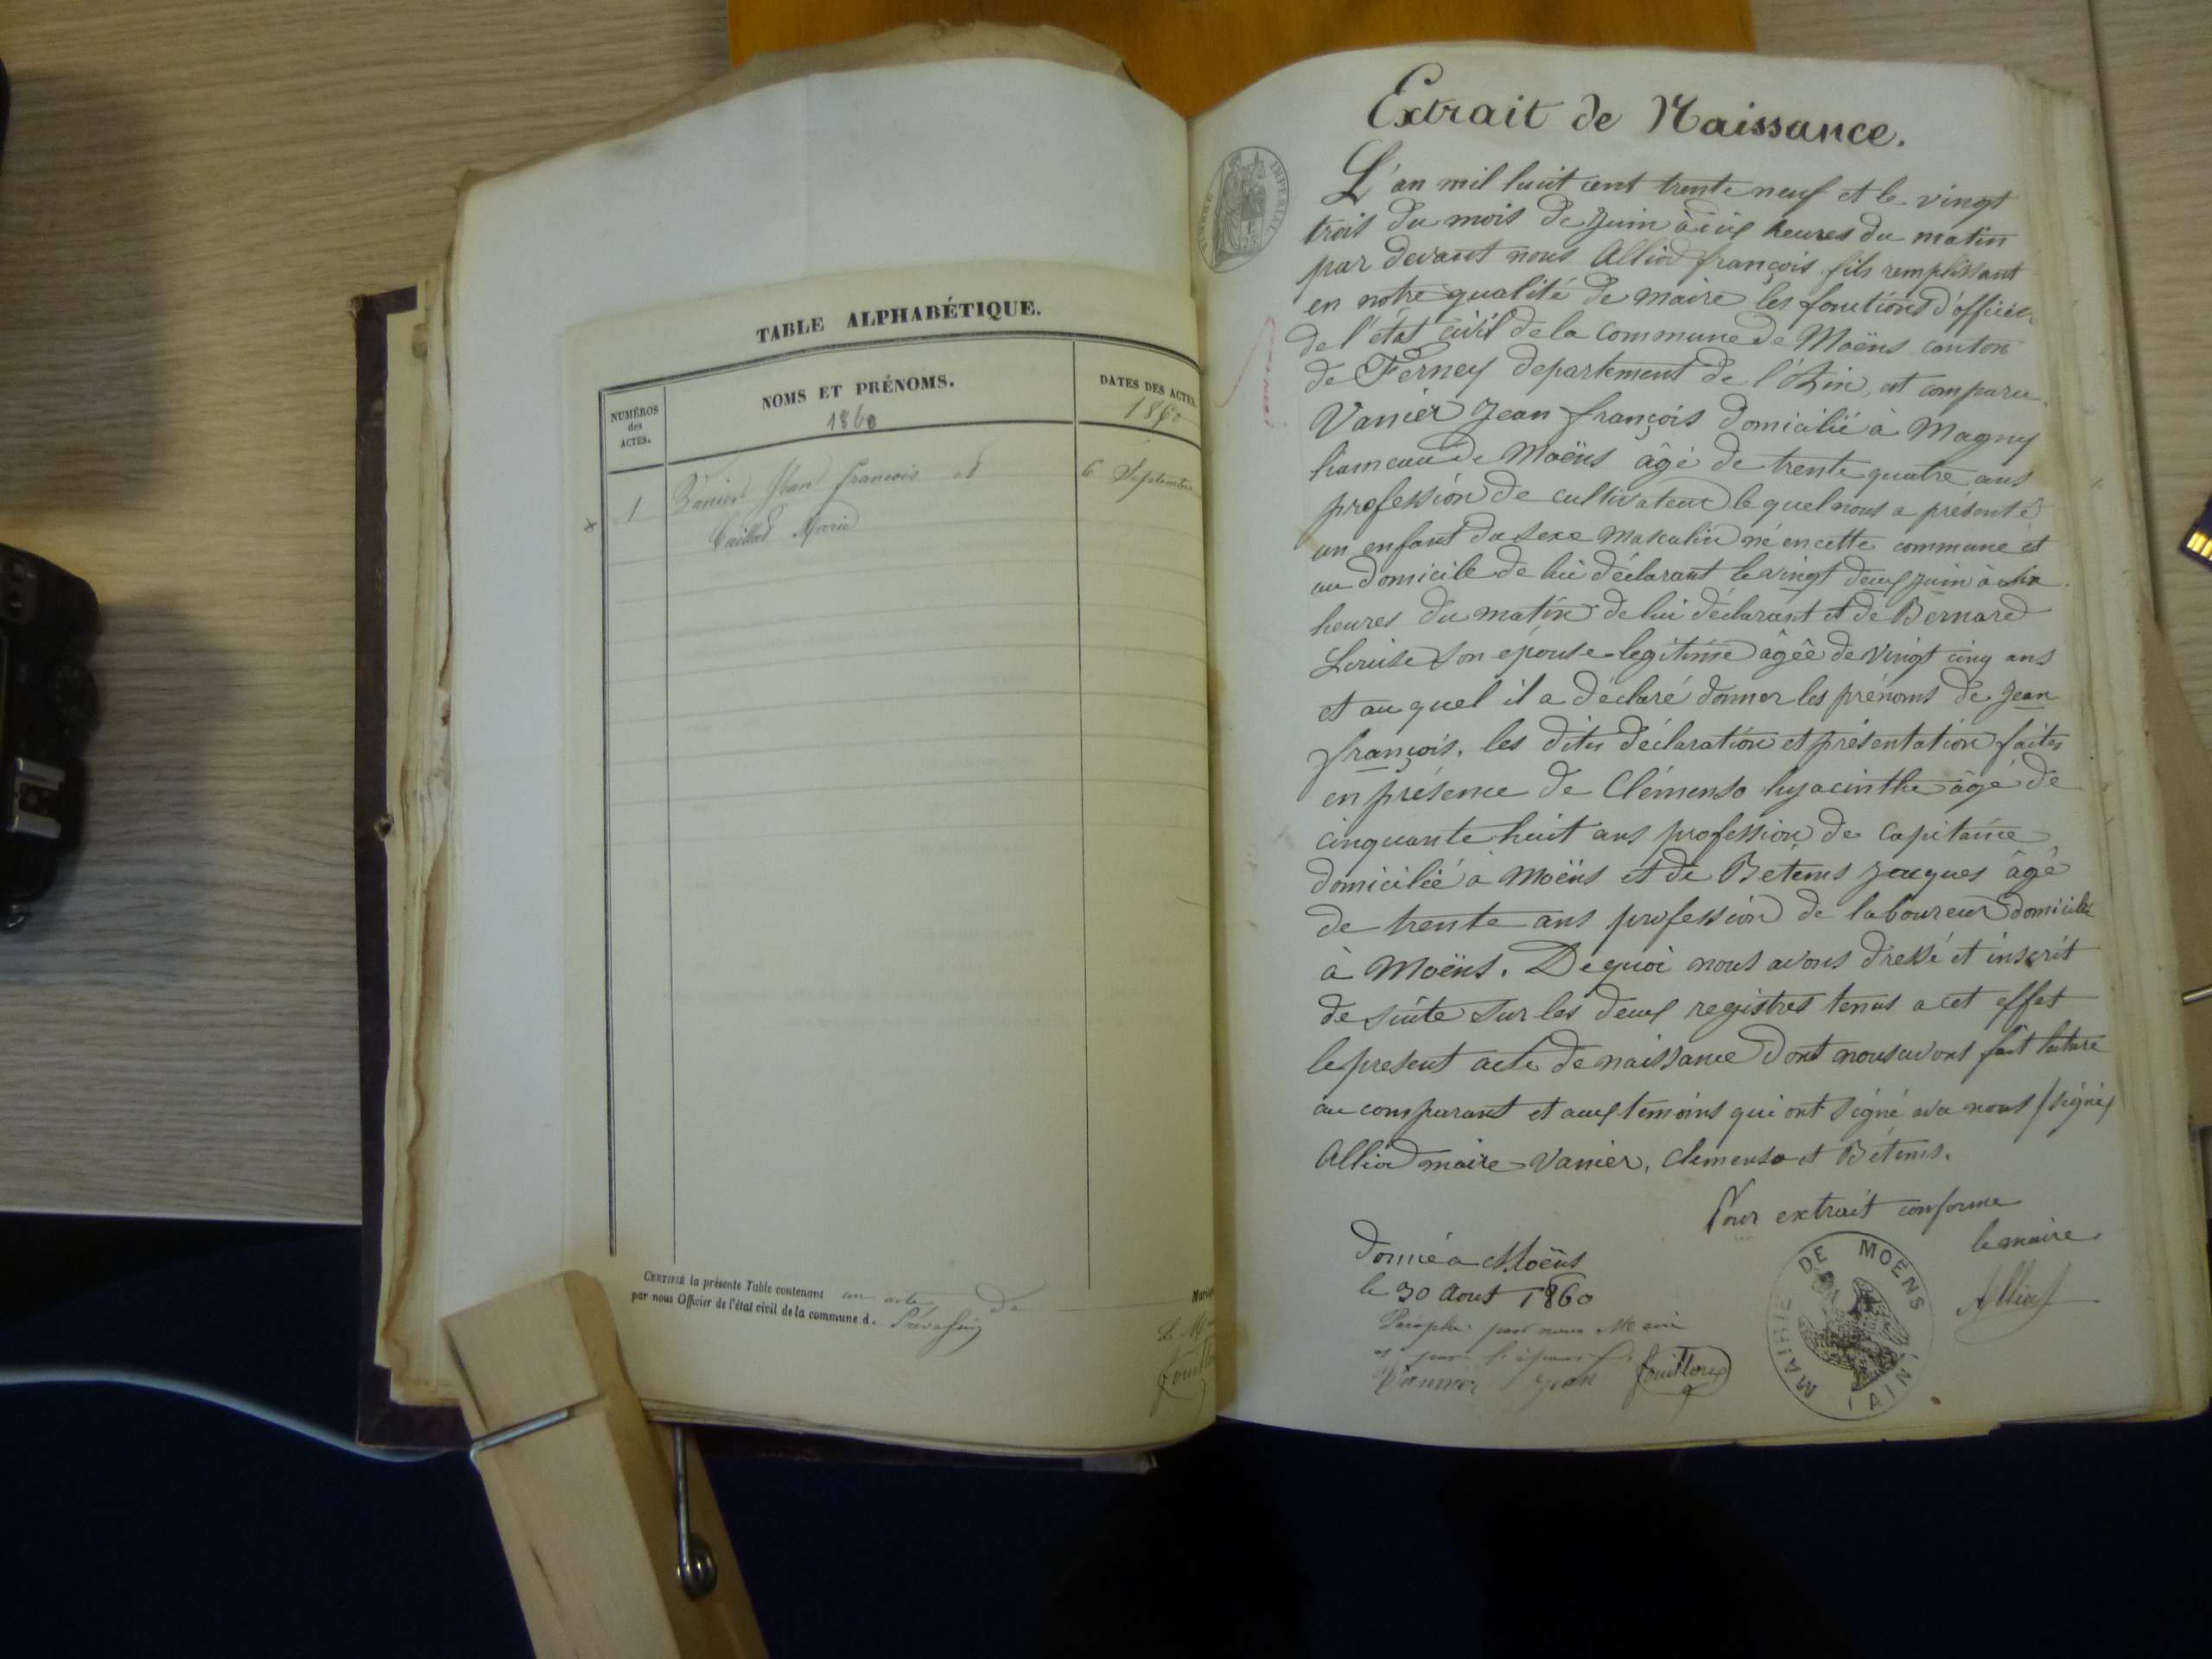 TABLE ALPHABÉTIQUE.
NUMÉROS
des
ACTES.
NOMS ET PRÉNOMS.
1860
DATES DES ACTES.
1860
1
Jean François et
6 Septembre
Marie
CERTIFIÉ la présente Table contenant un acte de
par nous Officier de l'état civil de la commune d
Extrait de Naissance.
IMPERIAL
L'an mil huit cent trente neuf et le vingt
trois du mois de Juin à dix heures du matin
par devant nous Alliod françois fils remplissant
en notre qualité de maire les fonctions d'officier
de l'état civil de la commune de Moëns canton
de Ferney departement de l'Ain, est comparu
Vanier Jean françois domicilié à Magny
hameau de Moëns âgé de trente quatre ans
profession de cultivateur le quel nous a présenté
un enfant du sexe masculin né en cette commune et
au domicile de lui déclarant le vingt deux juin à
heures du matin de lui déclarant et de Bernard
Louise son épouse legitime âgée de vingt cinq ans
et au quel il a déclaré donner les prénoms de Jean
françois. les dites déclaration et présentation faites
en présence de Clémenso hyacinthe âgé de
cinquante huit ans profession de Capitaine
domicilié à Moëns et de Bétems Jacques âgé
de trente ans profession de laboureur domicilié
à Moëns. De quoi nous avons dressé et inscrit
de suite sur les deux registres tenus a cet effet
le present acte de naissance dont nous avons fait lecture
au comparant et aux témoins qui ont signé avec nous (signé)
Alliod maire Vanier, Clemenso et Bétems.
Pour extrait conforme
le maire
Donné a Moëns
le 30 Aout 1860
Alliod
par nous Maire
Jean Fouilloux
MAIRIE DE MOËNS
(AIN)